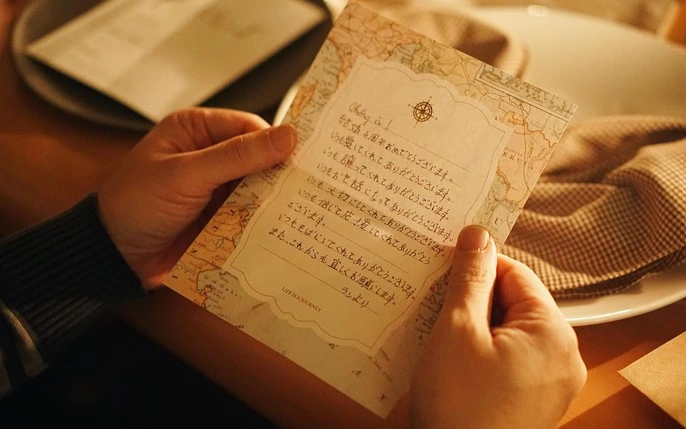 結婚周年おめでとうございます。
いつも愛してくれてありがとうございます。
いつもってくれてありがとうございます。
いつもお世話になってありがとうございます。
いつも大切にしてくれてありがとうございます。
いつも信じて応援してくれてありがとう
ございます。
いつもそばにいてくれてありがとうございます。
また、これからも宜しくお願いします。
ランより
LIFE IS A JOURNEY